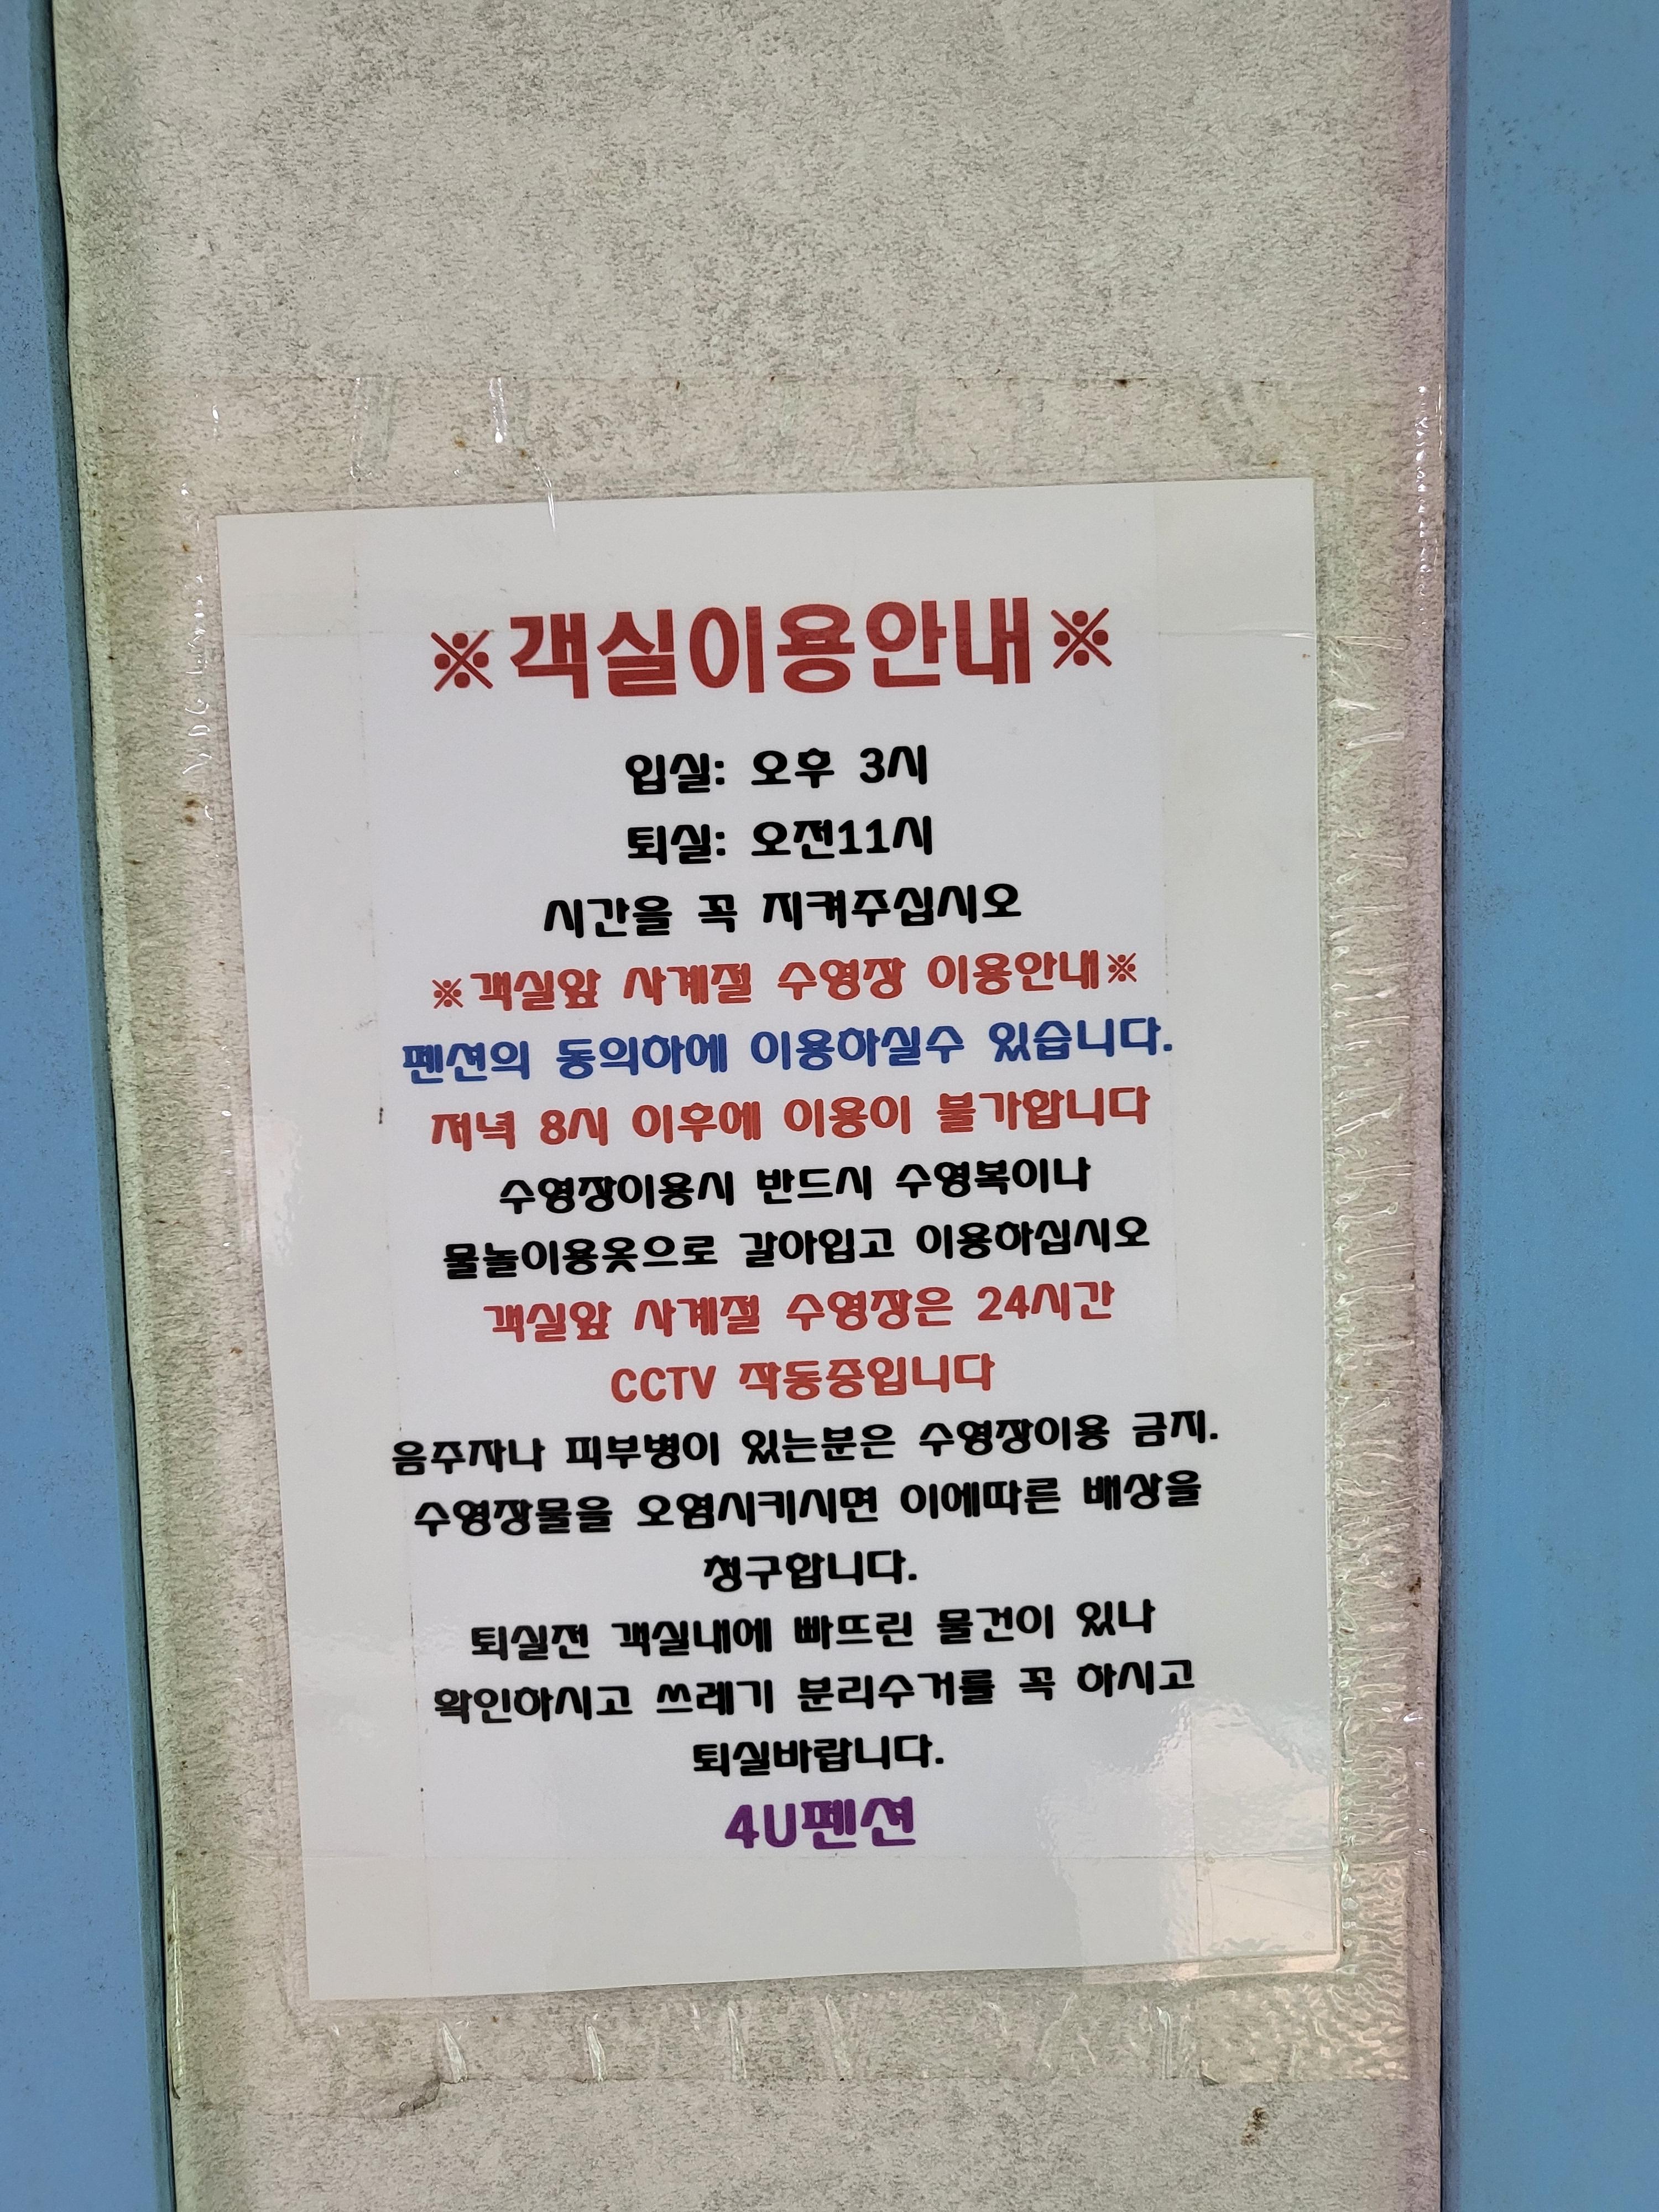 ※객실이용안내※
입실: 오후 3시
퇴실: 오전11시
시간을 꼭 지켜주십시오
※객실앞 사계절 수영장 이용안내※
펜션의 동의하에 이용하실수 있습니다.
저녁 8시 이후에 이용이 불가합니다
수영장이용시 반드시 수영복이나
물놀이용옷으로 갈아입고 이용하십시오
객실앞 사계절 수영장은 24시간
CCTV 작동중입니다
음주자나 피부병이 있는분은 수영장이용 금지.
수영장물을 오염시키시면 이에따른 배상을
청구합니다.
퇴실전 객실내에 빠뜨린 물건이 있나
확인하시고 쓰레기 분리수거를 꼭 하시고
퇴실바랍니다.
4U펜션